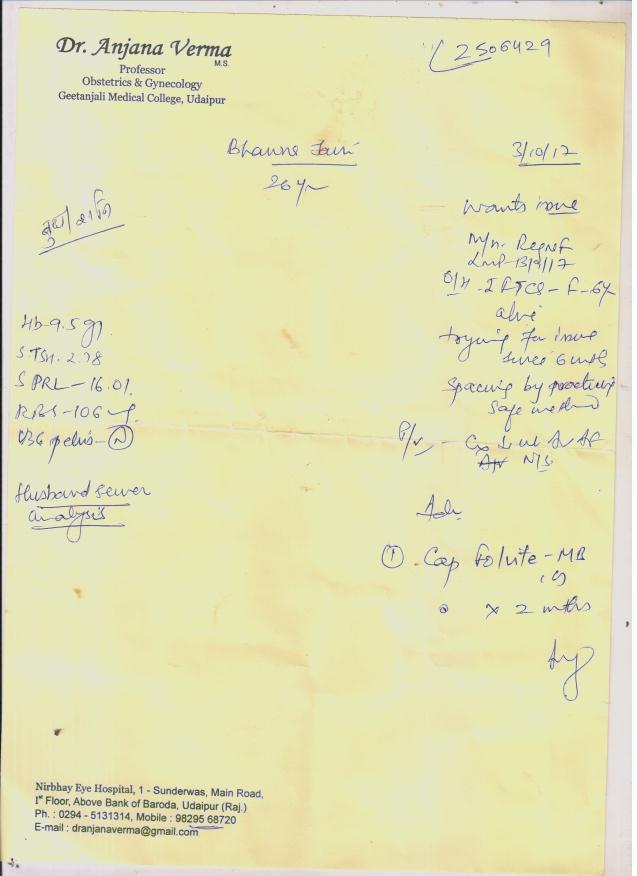 Dr. Anjana Verma
M.S.
Professor
Obstetrics & Gynecology
Geetanjali Medical College, Udaipur
2506429
3/10/17
26 yr
wants issue
M/H. Reg
LMP-13/9/17
O/H - I FTCS - F - 6y
alive
trying for issue
since 6 mths
spacing by practicing
safe method
P/v, - Cx
N/S
Hb-9.5 g
S TSH. 2.78
S PRL - 16.01
RBS-106
USG pelvis - N
Husband semen
analysis
Adv
1 Cap Folvite - MB
x 2 mths
Nirbhay Eye Hospital, 1 - Sunderwas, Main Road,
Ist Floor, Above Bank of Baroda, Udaipur (Raj.)
Ph. : 0294 - 5131314, Mobile : 98295 68720
E-mail : dranjanaverma@gmail.com